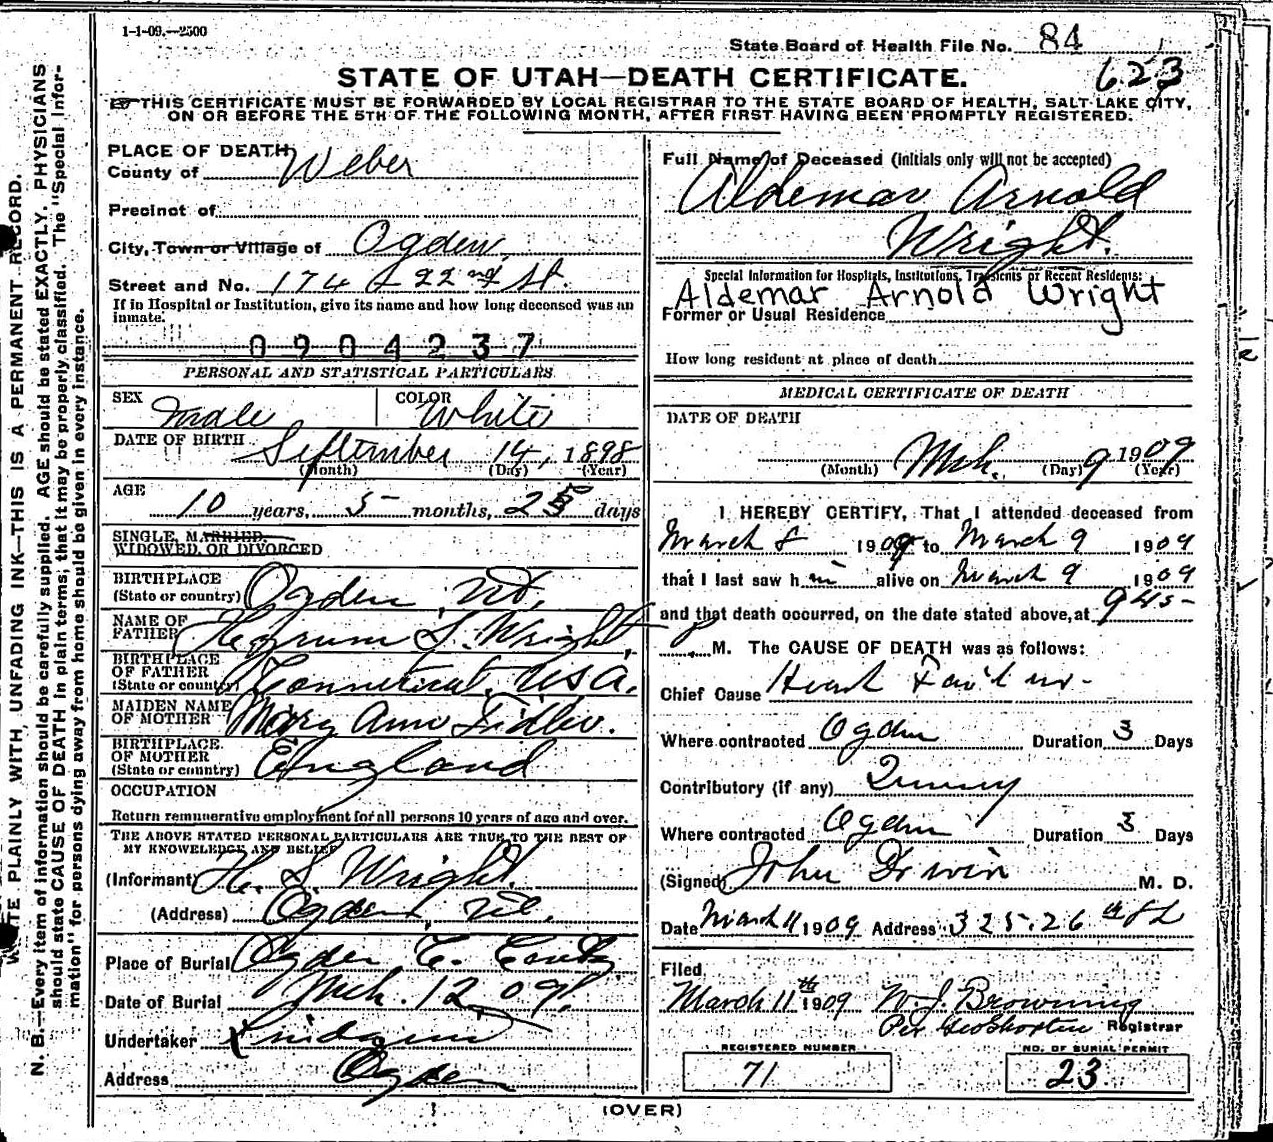 1-1-09.—2500
State Board of Health File No. 84
623
STATE OF UTAH—DEATH CERTIFICATE.
THIS CERTIFICATE MUST BE FORWARDED BY LOCAL REGISTRAR TO THE STATE BOARD OF HEALTH, SALT LAKE CITY,
ON OR BEFORE THE 5TH OF THE FOLLOWING MONTH, AFTER FIRST HAVING BEEN PROMPTLY REGISTERED.
PLACE OF DEATH
County of Weber
Precinct of
City, Town or Village of Ogden
Street and No. 174 22nd St.
If in Hospital or Institution, give its name and how long deceased was an
inmate.
0904237
PERSONAL AND STATISTICAL PARTICULARS
SEX male COLOR White
DATE OF BIRTH September 14, 1898
(Month) (Day) (Year)
AGE
10 years, 5 months, 2 days
SINGLE, MARRIED,
WIDOWED, OR DIVORCED
BIRTHPLACE
(State or country) Ogden, Ut.
NAME OF
FATHER S. Wright
BIRTHPLACE
OF FATHER
(State or country) Connecticut, USA.
MAIDEN NAME
OF MOTHER Mary Ann Fidler.
BIRTHPLACE
OF MOTHER
(State or country) England
OCCUPATION
Return remunerative employment for all persons 10 years of age and over.
THE ABOVE STATED PERSONAL PARTICULARS ARE TRUE TO THE BEST OF
MY KNOWLEDGE AND BELIEF
(Informant) H. S. Wright.
(Address) Ogden, Ut.
Place of Burial Ogden C.
Date of Burial Mch. 12, 09.
Undertaker
Address Ogden
Full Name of Deceased (initials only will not be accepted)
Aldemar Arnold
Wright.
Special Information for Hospitals, Institutions, Transients or Recent Residents:
Aldemar Arnold Wright
Former or Usual Residence
How long resident at place of death
MEDICAL CERTIFICATE OF DEATH
DATE OF DEATH
Mch. 9 1909
(Month) (Day) (Year)
I HEREBY CERTIFY, That I attended deceased from
March 8 1909 to March 9 1909
that I last saw him alive on March 9 1909
and that death occurred, on the date stated above, at 945
M. The CAUSE OF DEATH was as follows:
Chief Cause Heart Failure
Where contracted Ogden Duration 3 Days
Contributory (if any) Quinsy
Where contracted Ogden Duration 3 Days
(Signed) John Driver M. D.
Date March 11 1909 Address 325-26th St
Filed
March 11th 1909 W. J. Browning
Per Geo Shorten Registrar
REGISTERED NUMBER
71
NO. OF BURIAL PERMIT
23
(OVER)
N. B.—Every item of information should be carefully supplied. AGE should be stated EXACTLY. PHYSICIANS
should state CAUSE OF DEATH in plain terms, that it may be properly classified. The "Special Infor-
mation" for persons dying away from home should be given in every instance.
PLAINLY WITH, UNFADING INK—THIS IS A PERMANENT RECORD.